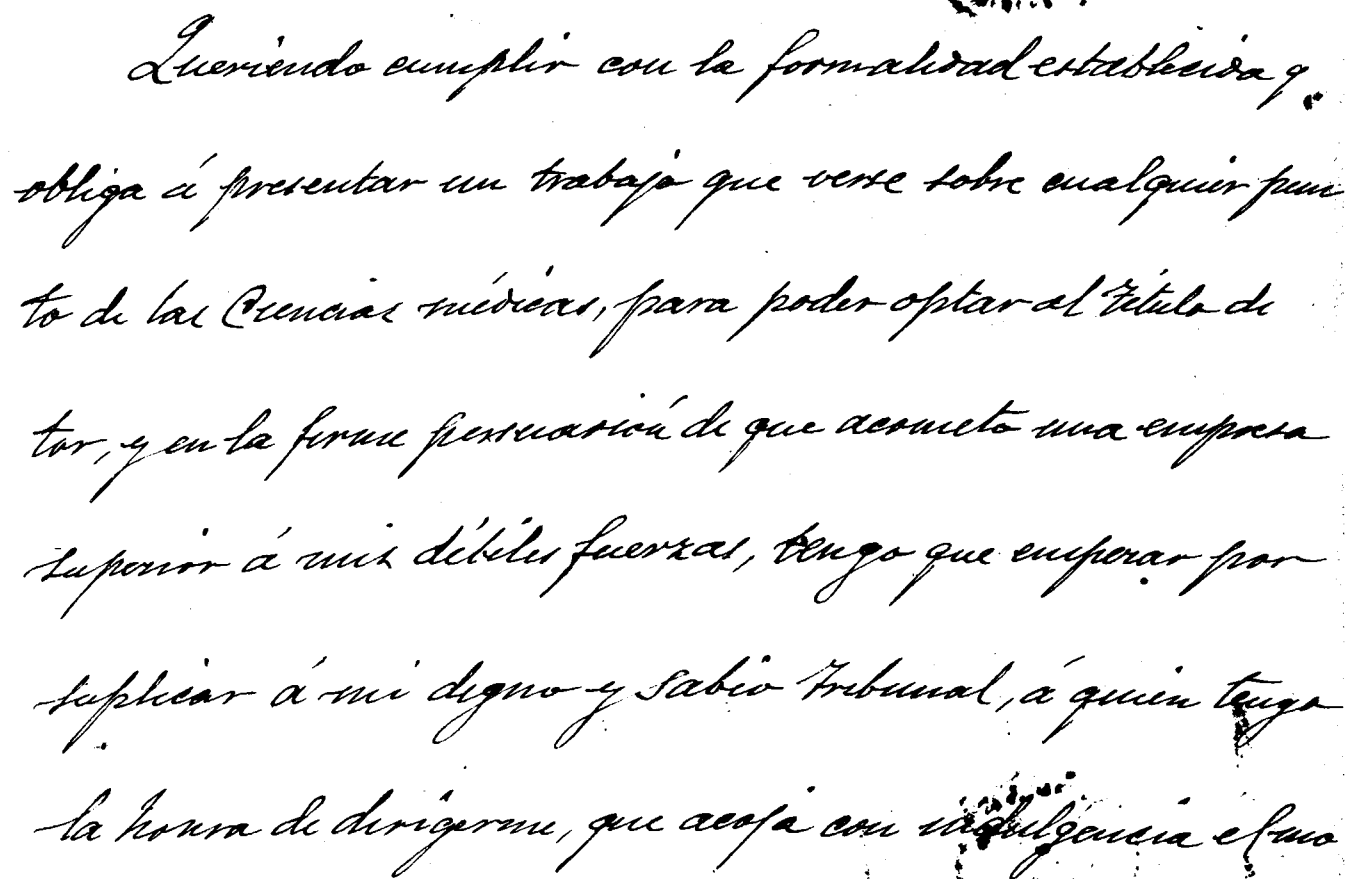 Queriendo cumplir con la formalidad establecida q.
obliga á presentar un trabajo que verse sobre cualquier pun
to de las Ciencias médicas, para poder optar al Título de
tor, y en la firme persuasión de que acometo una empresa
superior á mis débiles fuerzas, tengo que empezar por
suplicar á mi digno y sabio Tribunal, á quien tengo
la honra de dirigirme, que acoja con indulgencia el mo